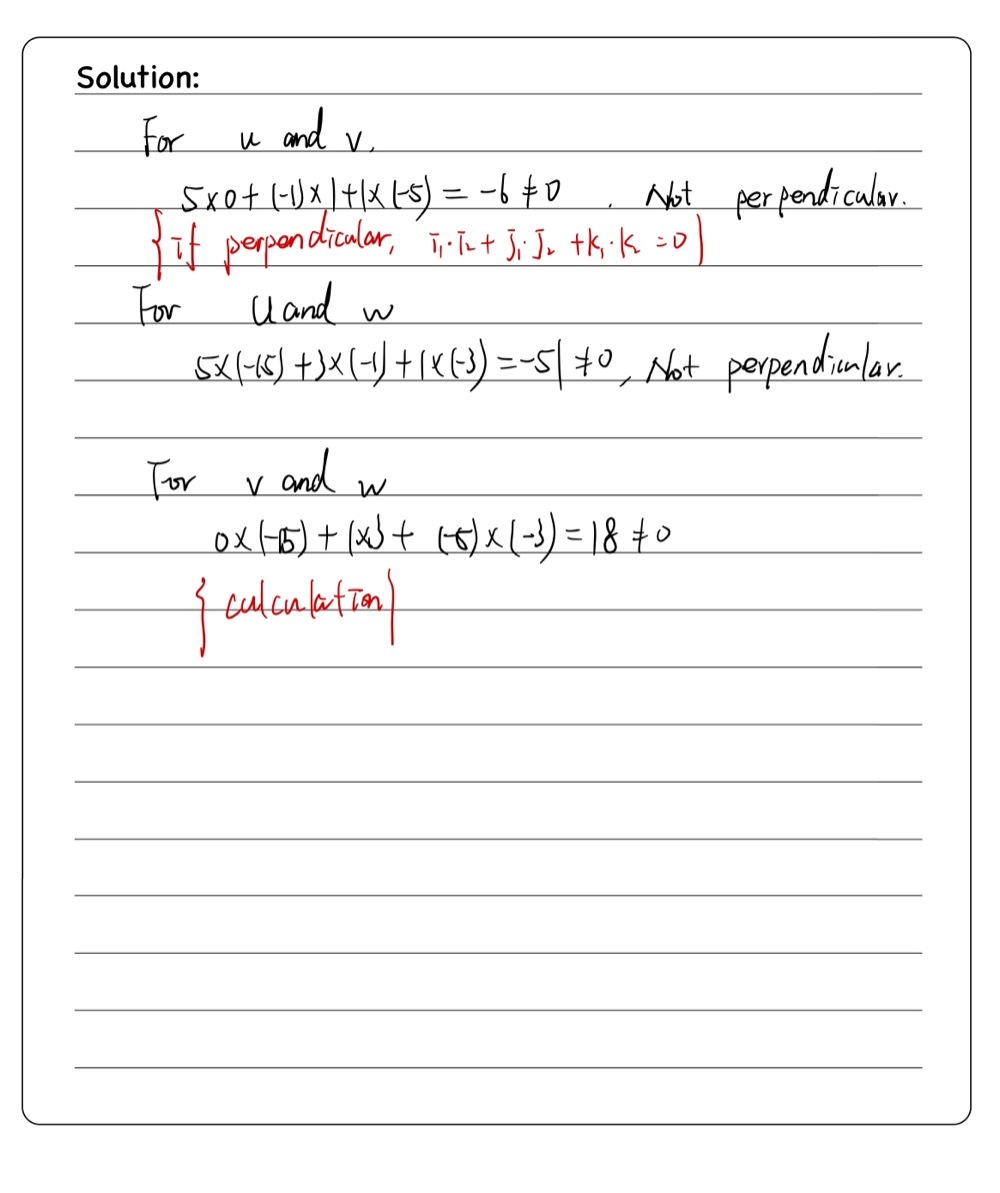 Solution:
For u and v,
5×0+(-1)×1+1×(-5)=-6≠0. Not perpendicular.
{if perpendicular, i₁·i₂+j₁·j₂+k₁·k₂=0}
For U and w
5×(-15)+3×(-1)+1×(-3)=-51≠0, Not perpendicular.
For v and w
0×(-15)+1×3+(-5)×(-3)=18≠0
{calculation}